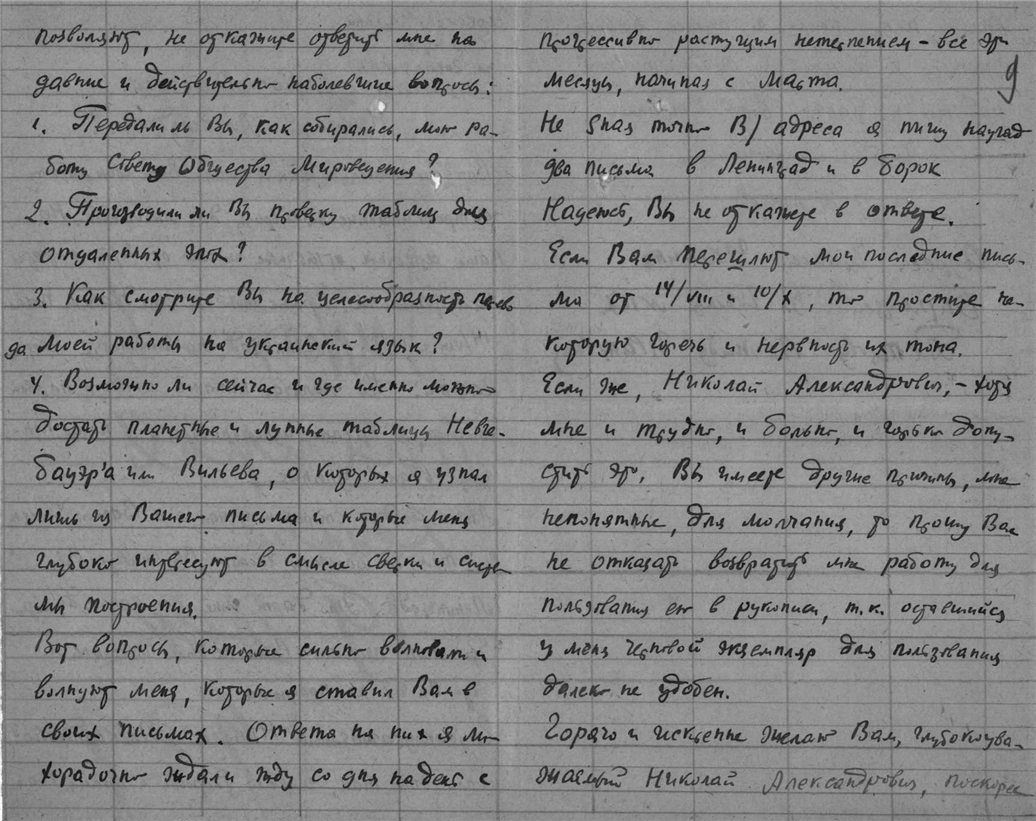 позволяют, не откажите ответить мне на
давние и действительно наболевшие вопросы:
1. Передали ль Вы, как собирались, мою ра-
боту Совету Общества Мироведения?
2. Производили ли Вы проверку таблиц для
отдаленных эпох?
3. Как смотрите Вы на целесообразность перево
да моей работы на украинский язык?
4. Возможно ли сейчас и где именно можно
достать планетные и лунные таблицы Невге-
бауэр'а или Вильева, о которых я узнал
лишь из Вашего письма и которые меня
глубоко интересуют в смысле сверки и систе
мы построения.
Вот вопросы, которые сильно волновали и
волнуют меня, которые я ставил Вам в
своих письмах. Ответа на них я ли-
хорадочно ждал и жду со дня на день с
9
прогрессивно растущим нетерпением – все эти
месяцы, начиная с марта.
Не зная точно В/ адреса я пишу наугад
два письма в Ленинград и в Борок
Надеюсь, Вы не откажете в ответе.
Если Вам перешлют мои последние пись-
ма от 14/VIII и 10/X, то простите не-
которую горечь и нервность их тона.
Если же, Николай Александрович, – хотя
мне и трудно, и больно, и горько допу-
стить это, Вы имеете другие причины, мне
непонятные, для молчания, то прошу Вас
не отказать возвратить мне работу для
пользования ею в рукописи, т.к. оставшийся
у меня черновой экземпляр для пользования
далеко не удобен.
Горячо и искренне желаю Вам, глубокоува-
жаемый Николай Александрович, поскорее